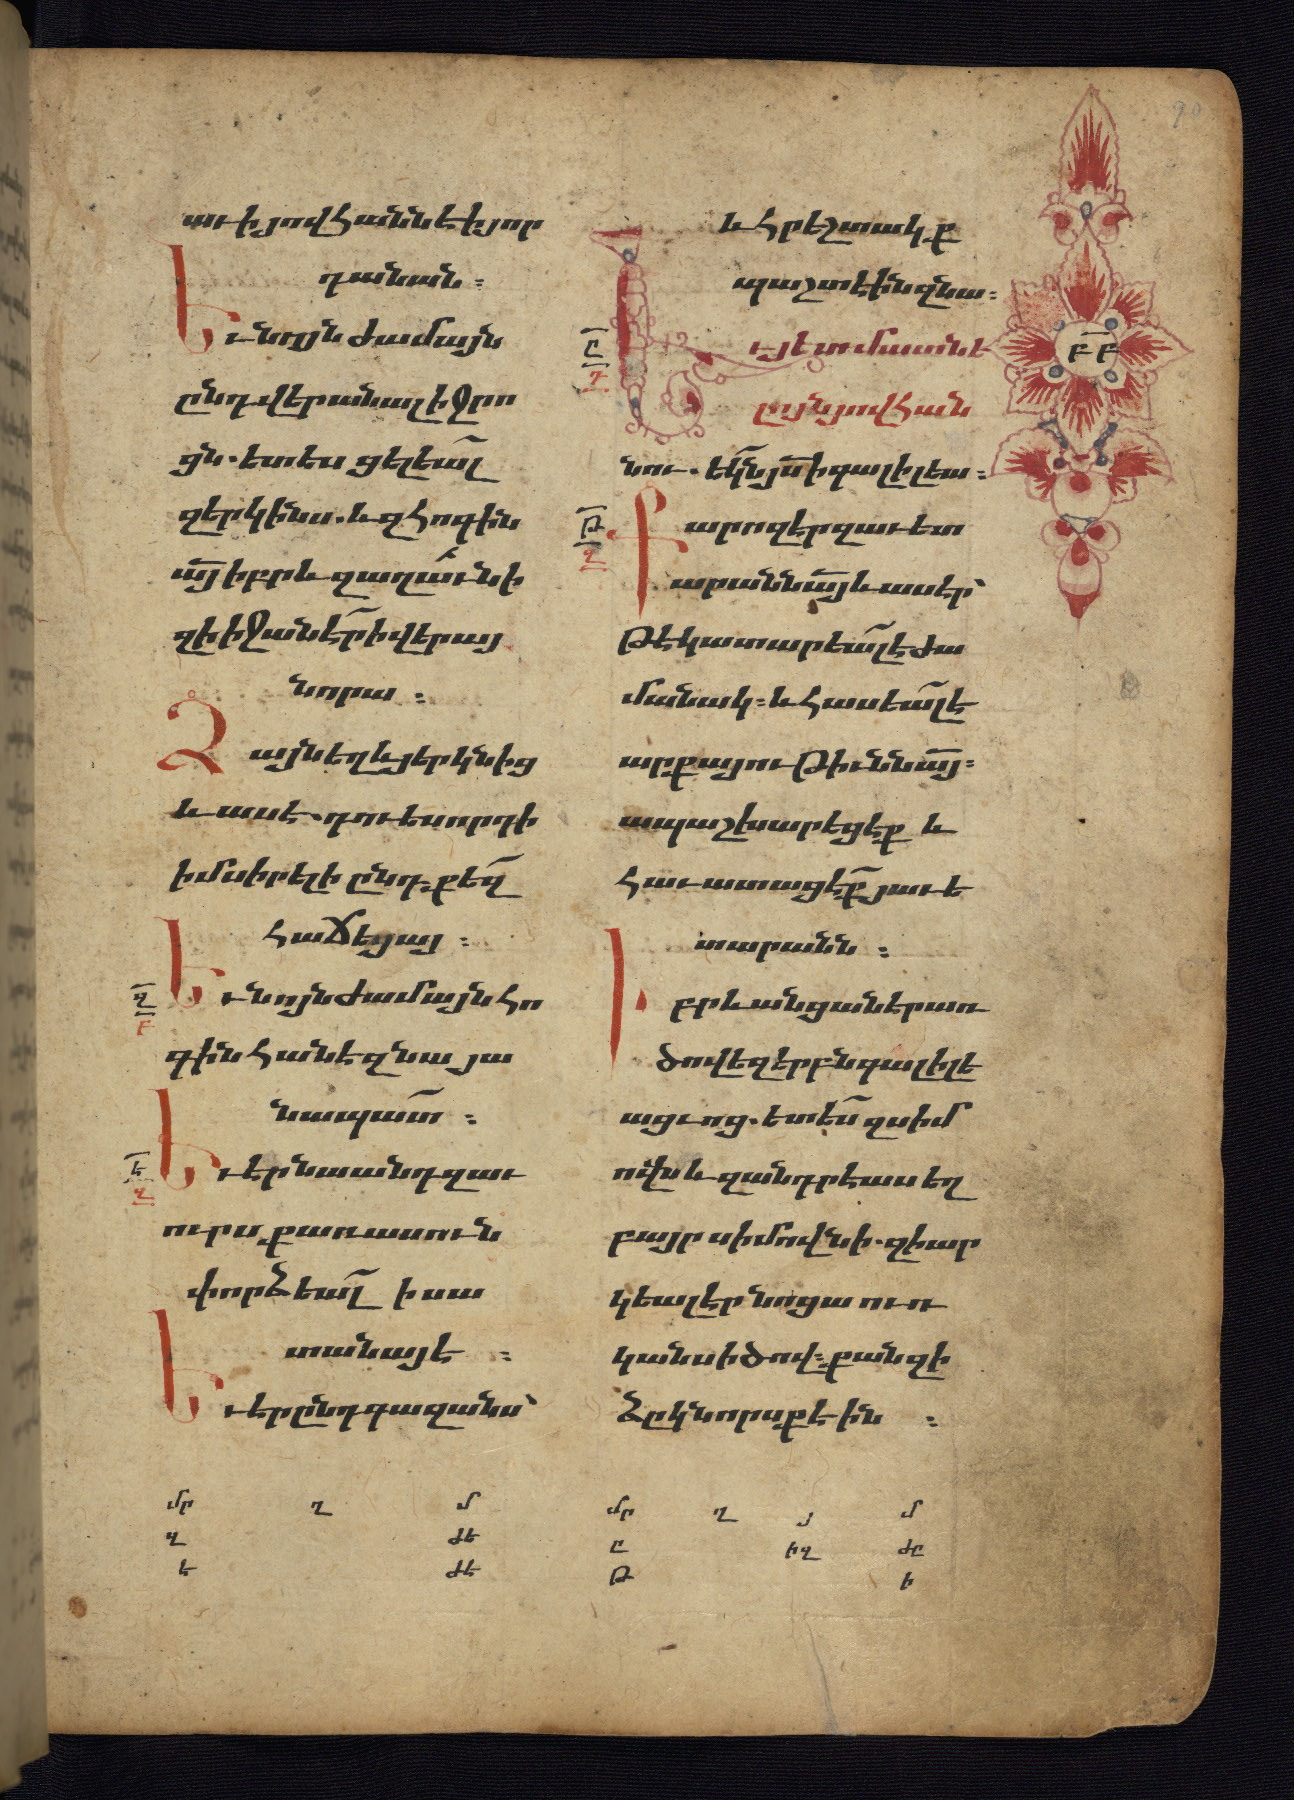 աւ ի յովհաննէ ի յոր
դանան :
Եւ նոյն ժամայն
ընդ վերանալ ի ջրո
ցն . ետես ցելեալ
զերկինս . և զհոգին
այ իբրև զաղաւնի
զի իջանէր ի վերայ
նորա :
Ձայն եղև յերկնից
և ասէ . դու ես որդի
իմ սիրելի ընդ քեզ
հաճեցայ :
Եւ նոյն ժամայն հո
գին հանէ զնա յա
նապատ :
Եւ էր նա անդ զաւ
ուրս քառասուն
փորձեալ ի սա
տանայէ :
Եւ էր ընդ գազանս՝
մր ղ մ
զ ժե
է ժե
և հրեշտակք
պաշտէին զնա :
Եւ յետ մատնե
լոյն յովհան
նու . եկն յս ի գալիլեա :
Քարոզէր զաւետ
արանն այ և ասէր՝
թէ կատարեալ է ժա
մանակ : և հասեալ է
արքայութիւնն այ :
ապաշխարեցէք և
հաւատացէք յաւե
տարանն :
Իբրև անցանէր առ
ծովեզերբն գալիլե
ացւոց . ետես զսիմ
ովն և զանդրէաս եղ
բայր սիմովնի . զի ար
կեալ էր նոցա ուռ
կանս ի ծով : քանզի
ձըկնորսք էին :
մր ղ յ մ
ը իզ ժը
թ ի
ԲԲ
90